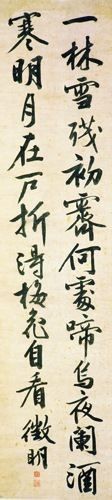 一林雪残初霽何處啼烏夜闌酒
寒明月在户折得梅花自看徵明